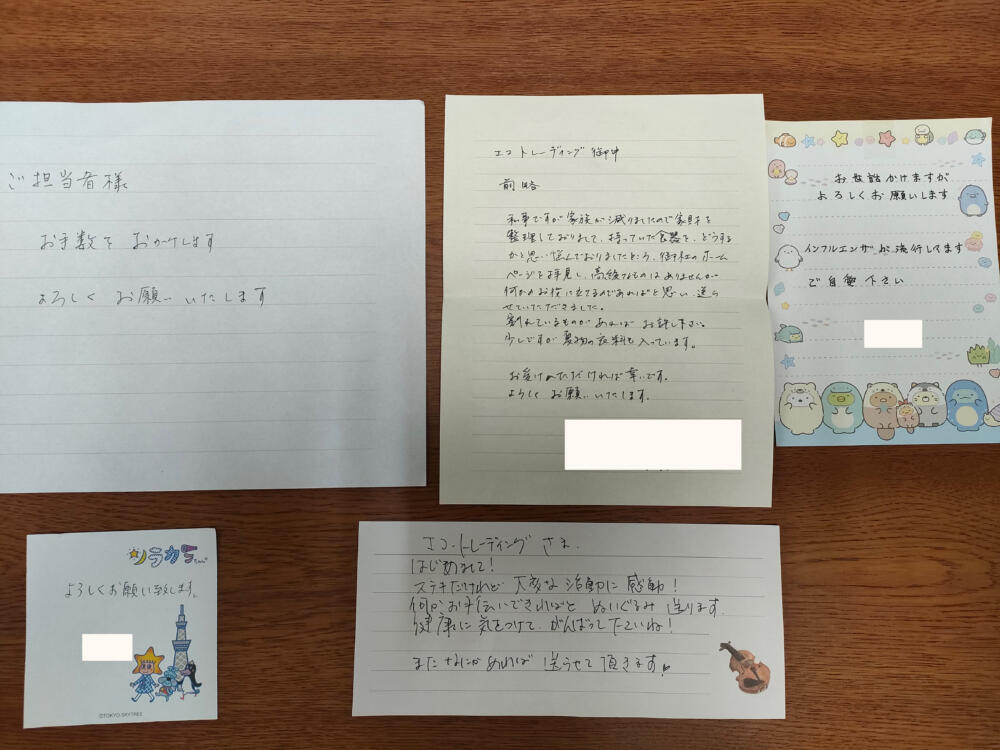 ご担当者様
お手数を おかけします
よろしく お願い いたします
エコトレーディング 御中
前略
私事ですが家族が減りましたので家財を
整理しておりまして、持っていた食器を、どうする
かと思い悩んでおりましたところ、御社のホーム
ページを拝見し、高級なものはありませんが
何かのお役に立てるのであればと思い、送ら
せていただきました。
割れているものが あれば お許し下さい。
少しですが 夏物の衣料も入っています。
お受けいただければ幸いです。
よろしく お願いいたします。
お世話かけますが
よろしくお願いします
インフルエンザが流行してます
ご自愛下さい
ソラカラちゃん
よろしくお願い致します。
©TOKYO-SKYTREE
エコ・トレーディング さま
はじめまして!
ステキだけれど 大変な活動に感動!
何かお手伝いできればと ぬいぐるみ 送ります
健康に気をつけて、がんばって下さいね!
またなにかあれば 送らせて頂きます